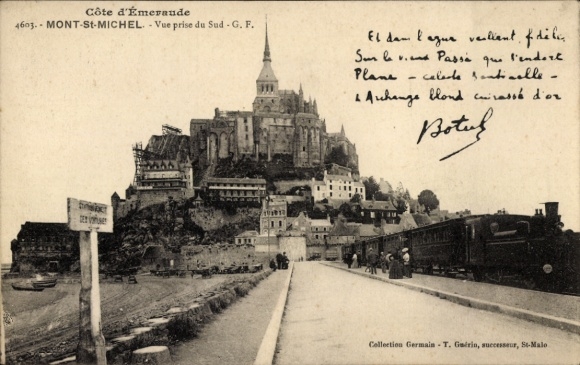 Côte d'Émeraude
4603. - MONT-St-MICHEL. - Vue prise du Sud - G. F.
Et dans l'azur veillant, fidèle,
Sur le vieux Passé qui s'endort
Plane - céleste sentinelle -
L'Archange blond cuirassé d'or
Botrel
STATIONNEMENT
DES VOITURES
Collection Germain - T. Guérin, successeur, St-Malo